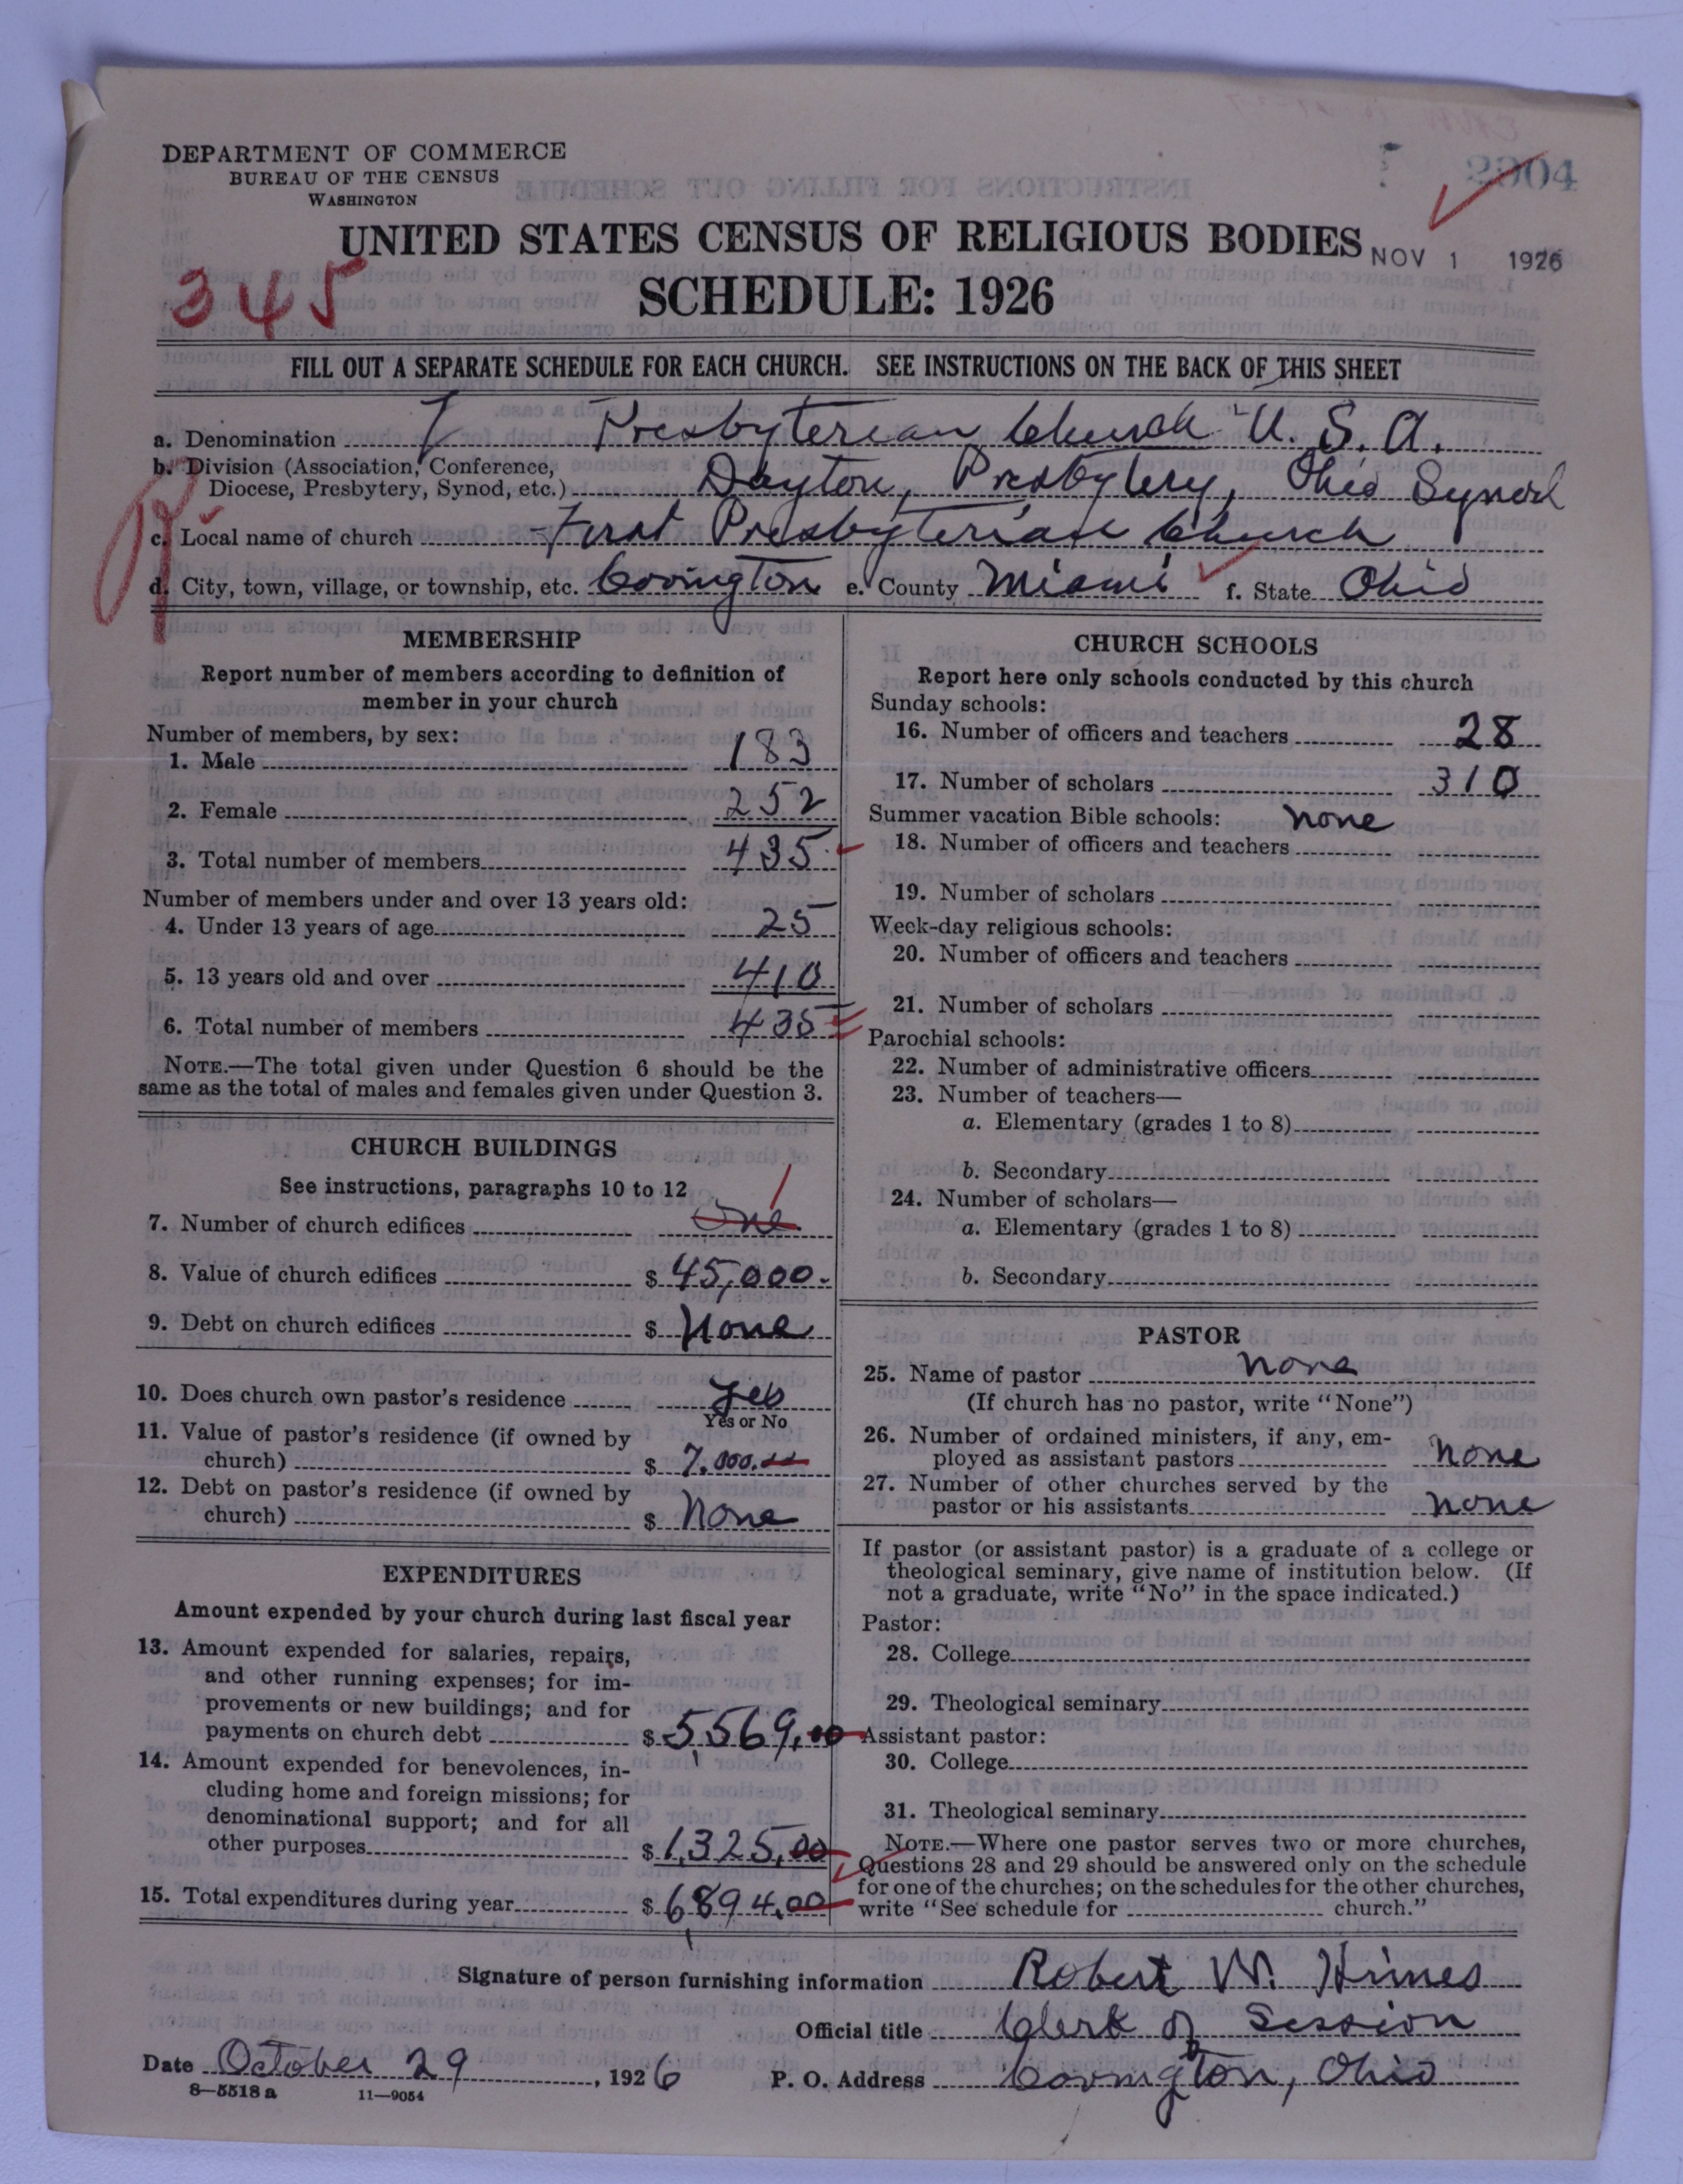 DEPARTMENT OF COMMERCE
BUREAU OF THE CENSUS
WASHINGTON
2904
UNITED STATES CENSUS OF RELIGIOUS BODIES
NOV 1 1926
SCHEDULE: 1926
345
FILL OUT A SEPARATE SCHEDULE FOR EACH CHURCH. SEE INSTRUCTIONS ON THE BACK OF THIS SHEET
a. Denomination Presbyterian Church U. S. A.
b. Division (Association, Conference,
Diocese, Presbytery, Synod, etc.) Dayton, Presbytery, Ohio Synod
c. Local name of church First Presbyterian Church
d. City, town, village, or township, etc. Covington e. County Miami f. State Ohio
MEMBERSHIP
Report number of members according to definition of
member in your church
Number of members, by sex:
1. Male 183
2. Female 252
3. Total number of members 435
Number of members under and over 13 years old:
4. Under 13 years of age 25
5. 13 years old and over 410
6. Total number of members 435
NOTE.—The total given under Question 6 should be the
same as the total of males and females given under Question 3.
CHURCH BUILDINGS
See instructions, paragraphs 10 to 12
7. Number of church edifices One 1
8. Value of church edifices $ 45,000.
9. Debt on church edifices $ None
10. Does church own pastor's residence Yes
Yes or No
11. Value of pastor's residence (if owned by
church) $ 7,000.00
12. Debt on pastor's residence (if owned by
church) $ None
EXPENDITURES
Amount expended by your church during last fiscal year
13. Amount expended for salaries, repairs,
and other running expenses; for im-
provements or new buildings; and for
payments on church debt $ 5,569,00
14. Amount expended for benevolences, in-
cluding home and foreign missions; for
denominational support; and for all
other purposes $ 1,325,00
15. Total expenditures during year $ 6,894,00
CHURCH SCHOOLS
Report here only schools conducted by this church
Sunday schools:
16. Number of officers and teachers 28
17. Number of scholars 310
Summer vacation Bible schools: none
18. Number of officers and teachers
19. Number of scholars
Week-day religious schools:
20. Number of officers and teachers
21. Number of scholars
Parochial schools:
22. Number of administrative officers
23. Number of teachers—
a. Elementary (grades 1 to 8)
b. Secondary
24. Number of scholars—
a. Elementary (grades 1 to 8)
b. Secondary
PASTOR
25. Name of pastor none
(If church has no pastor, write "None")
26. Number of ordained ministers, if any, em-
ployed as assistant pastors none
27. Number of other churches served by the
pastor or his assistants none
If pastor (or assistant pastor) is a graduate of a college or
theological seminary, give name of institution below. (If
not a graduate, write "No" in the space indicated.)
Pastor:
28. College
29. Theological seminary
Assistant pastor:
30. College
31. Theological seminary
NOTE.—Where one pastor serves two or more churches,
Questions 28 and 29 should be answered only on the schedule
for one of the churches; on the schedules for the other churches,
write "See schedule for church."
Signature of person furnishing information Robert W. Himes
Official title Clerk of Session
Date October 29, 1926 P. O. Address Covington, Ohio
8—5518 a 11—9054